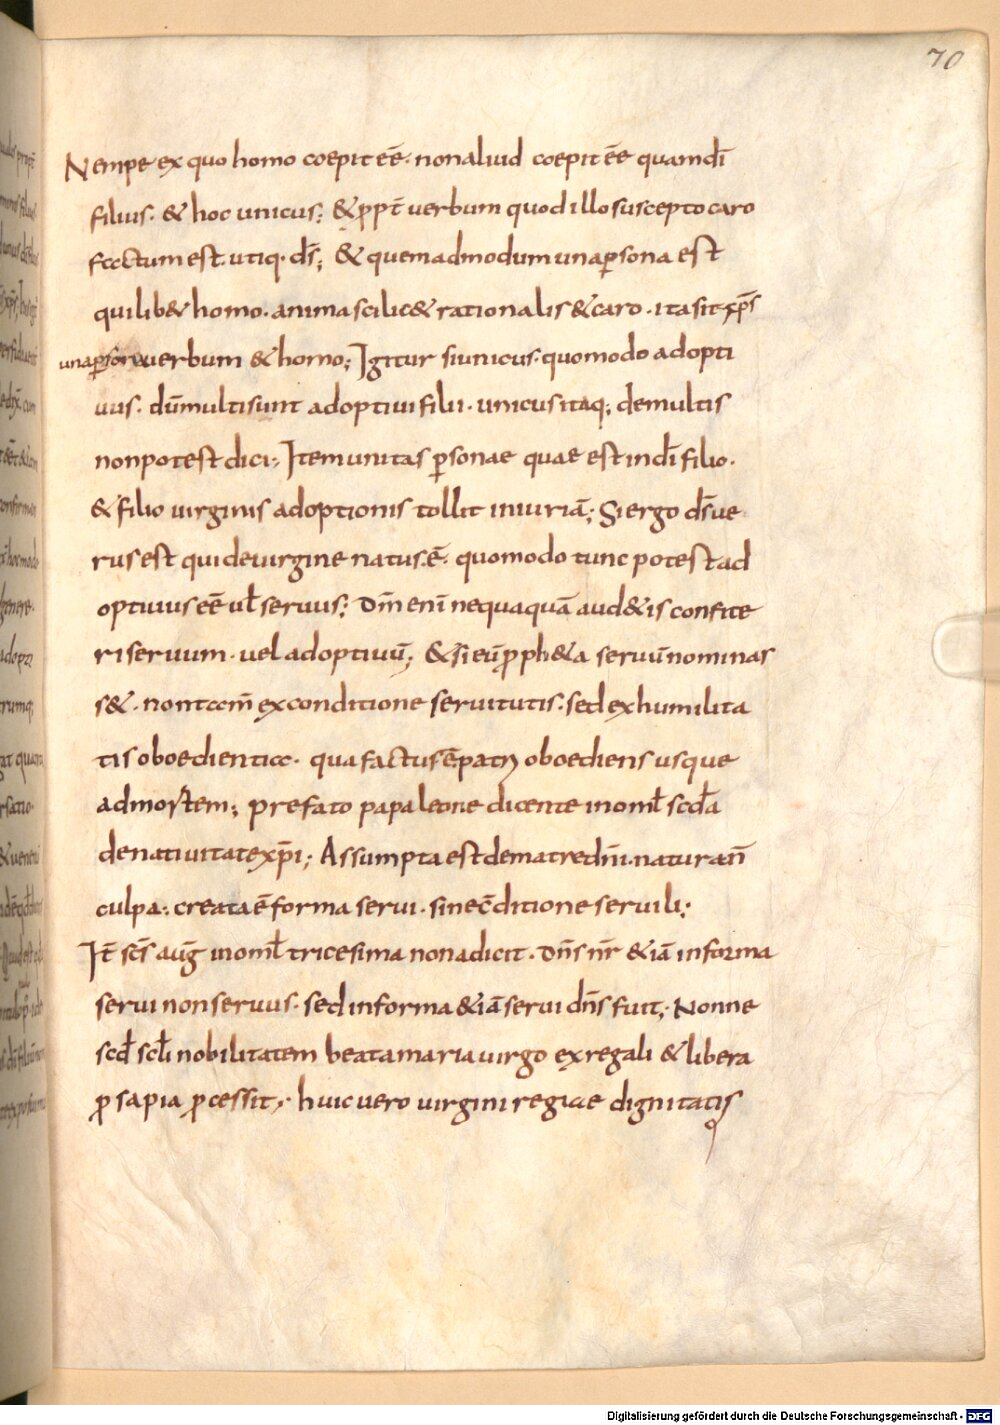 70
Nempe ex quo homo coepit eē· non aliud coepit eē quam dī
filius· & hoc unicus; & ppt̄ uerbum quod illo suscepto caro
factum est· utiq· dſ̄; & quemadmodum una ꝑsona est
quilib& homo· anima scilic& rationalis & caro· ita sit xp̄s
una ꝑsona uerbum & homo; Igitur si unicus· quomodo adopti
uus· dū multi sunt adoptiui filii· unicus itaq; de multis
non potest dici; Item unitas ꝑsonae quae est in dī filio·
& filio uirginis adoptionis tollit iniuriā; Si ergo ds̄ ue
rus est qui de uirgine natus·ē· quomodo tunc potest ad
optiuus eē ul̄ seruus; Dm̄ enī nequaquā aud&is confite
ri seruum· uel adoptiuū; & si eū ꝓph&a seruū nominas
s&· non tam̄ ex conditione seruitutis· sed ex humilita
tis oboedientia· qua factus ē patri oboediens usque
ad mortem; prefato papa leone dicente in oml̄ scd̄a
de natiuitate xp̄i; Assumpta est de matre dn̄i· natura n̄
culpa; creata ē forma serui· sine c̄ditione seruili;
It̄ sc̄s auḡ in oml̄ tricesima nona dicit· Dn̄s nr̄ &iā in forma
serui non seruus· sed in forma &iā serui dn̄s fuit; Nonne
scd̄ scl̄i nobilitatem beata maria uirgo ex regali & libera
ꝓsapia ꝓcessit; huic uero uirgini regiae dignitatis
Digitalisierung gefördert durch die Deutsche Forschungsgemeinschaft - DFG